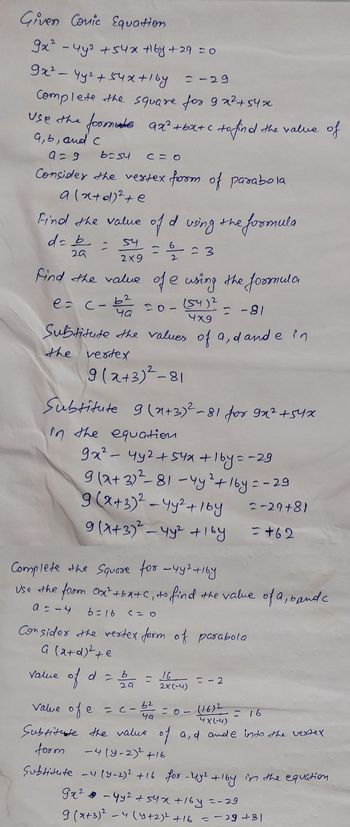 Given Conic Equation
9x² - 4y² + 54x + 16y + 29 = 0
9x² - 4y² + 54x + 16y = -29
Complete the square for 9x² + 54x
Use the formula ax² + bx + c to find the value of
a, b, and c
a = 9 b = 54 c = 0
Consider the vertex form of parabola
a(x+d)² + e
Find the value of d using the formula
d = b/2a = 54/2×9 = 6/2 = 3
Find the value of e using the formula
e = c - b²/4a = 0 - (54)²/4×9 = -81
Substitute the values of a, d and e in
the vertex
9(x+3)² - 81
Substitute 9(x+3)² - 81 for 9x² + 54x
in the equation
9x² - 4y² + 54x + 16y = -29
9(x+3)² - 81 - 4y² + 16y = -29
9(x+3)² - 4y² + 16y = -29 + 81
9(x+3)² - 4y² + 16y = +62
Complete the Square for -4y² + 16y
Use the form ax² + bx + c, to find the value of a, b and c
a = -4 b = 16 c = 0
Consider the vertex form of parabola
a(x+d)² + e
Value of d = b/2a = 16/2×(-4) = -2
Value of e = c - b²/4a = 0 - (16)²/4×(-4) = 16
Substitute the value of a, d and e into the vertex
form -4(y-2)² + 16
Substitute -4(y-2)² + 16 for -4y² + 16y in the equation
9x² - 4y² + 54x + 16y = -29
9(x+3)² - 4(y+2)² + 16 = -29 + 81